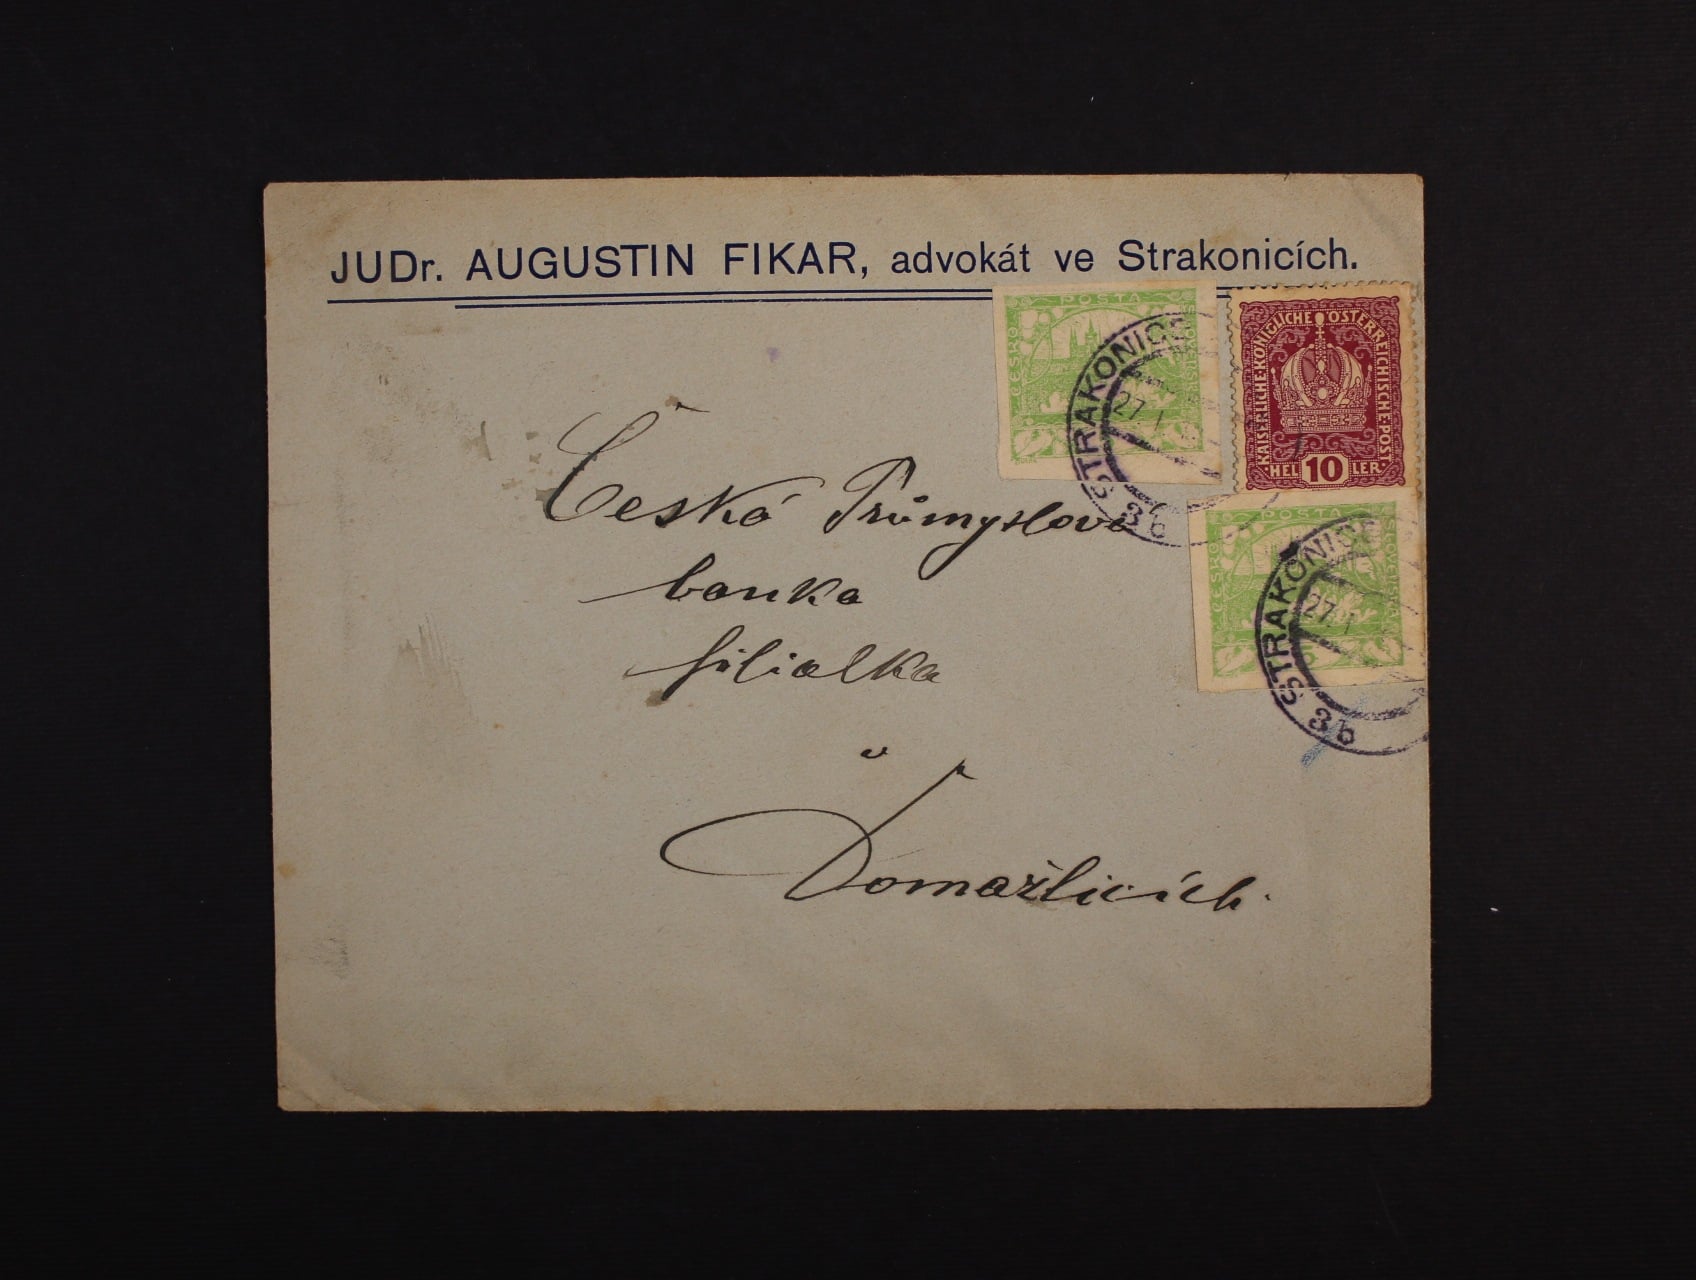 JUDr. AUGUSTIN FIKAR, advokát ve Strakonicích.
POSTA
ČESKO
SLOVENSKÁ
STRAKONICE
27. I
3b
KAISERLICHE·KÖNIGLICHE ÖSTERREICHISCHE·POST
HEL 10 LER
POSTA
ČESKO
SLOVENSKÁ
5
STRAKONICE
27. I
3b
Česká Průmyslová
banka
filialka
v
Domažlicích.